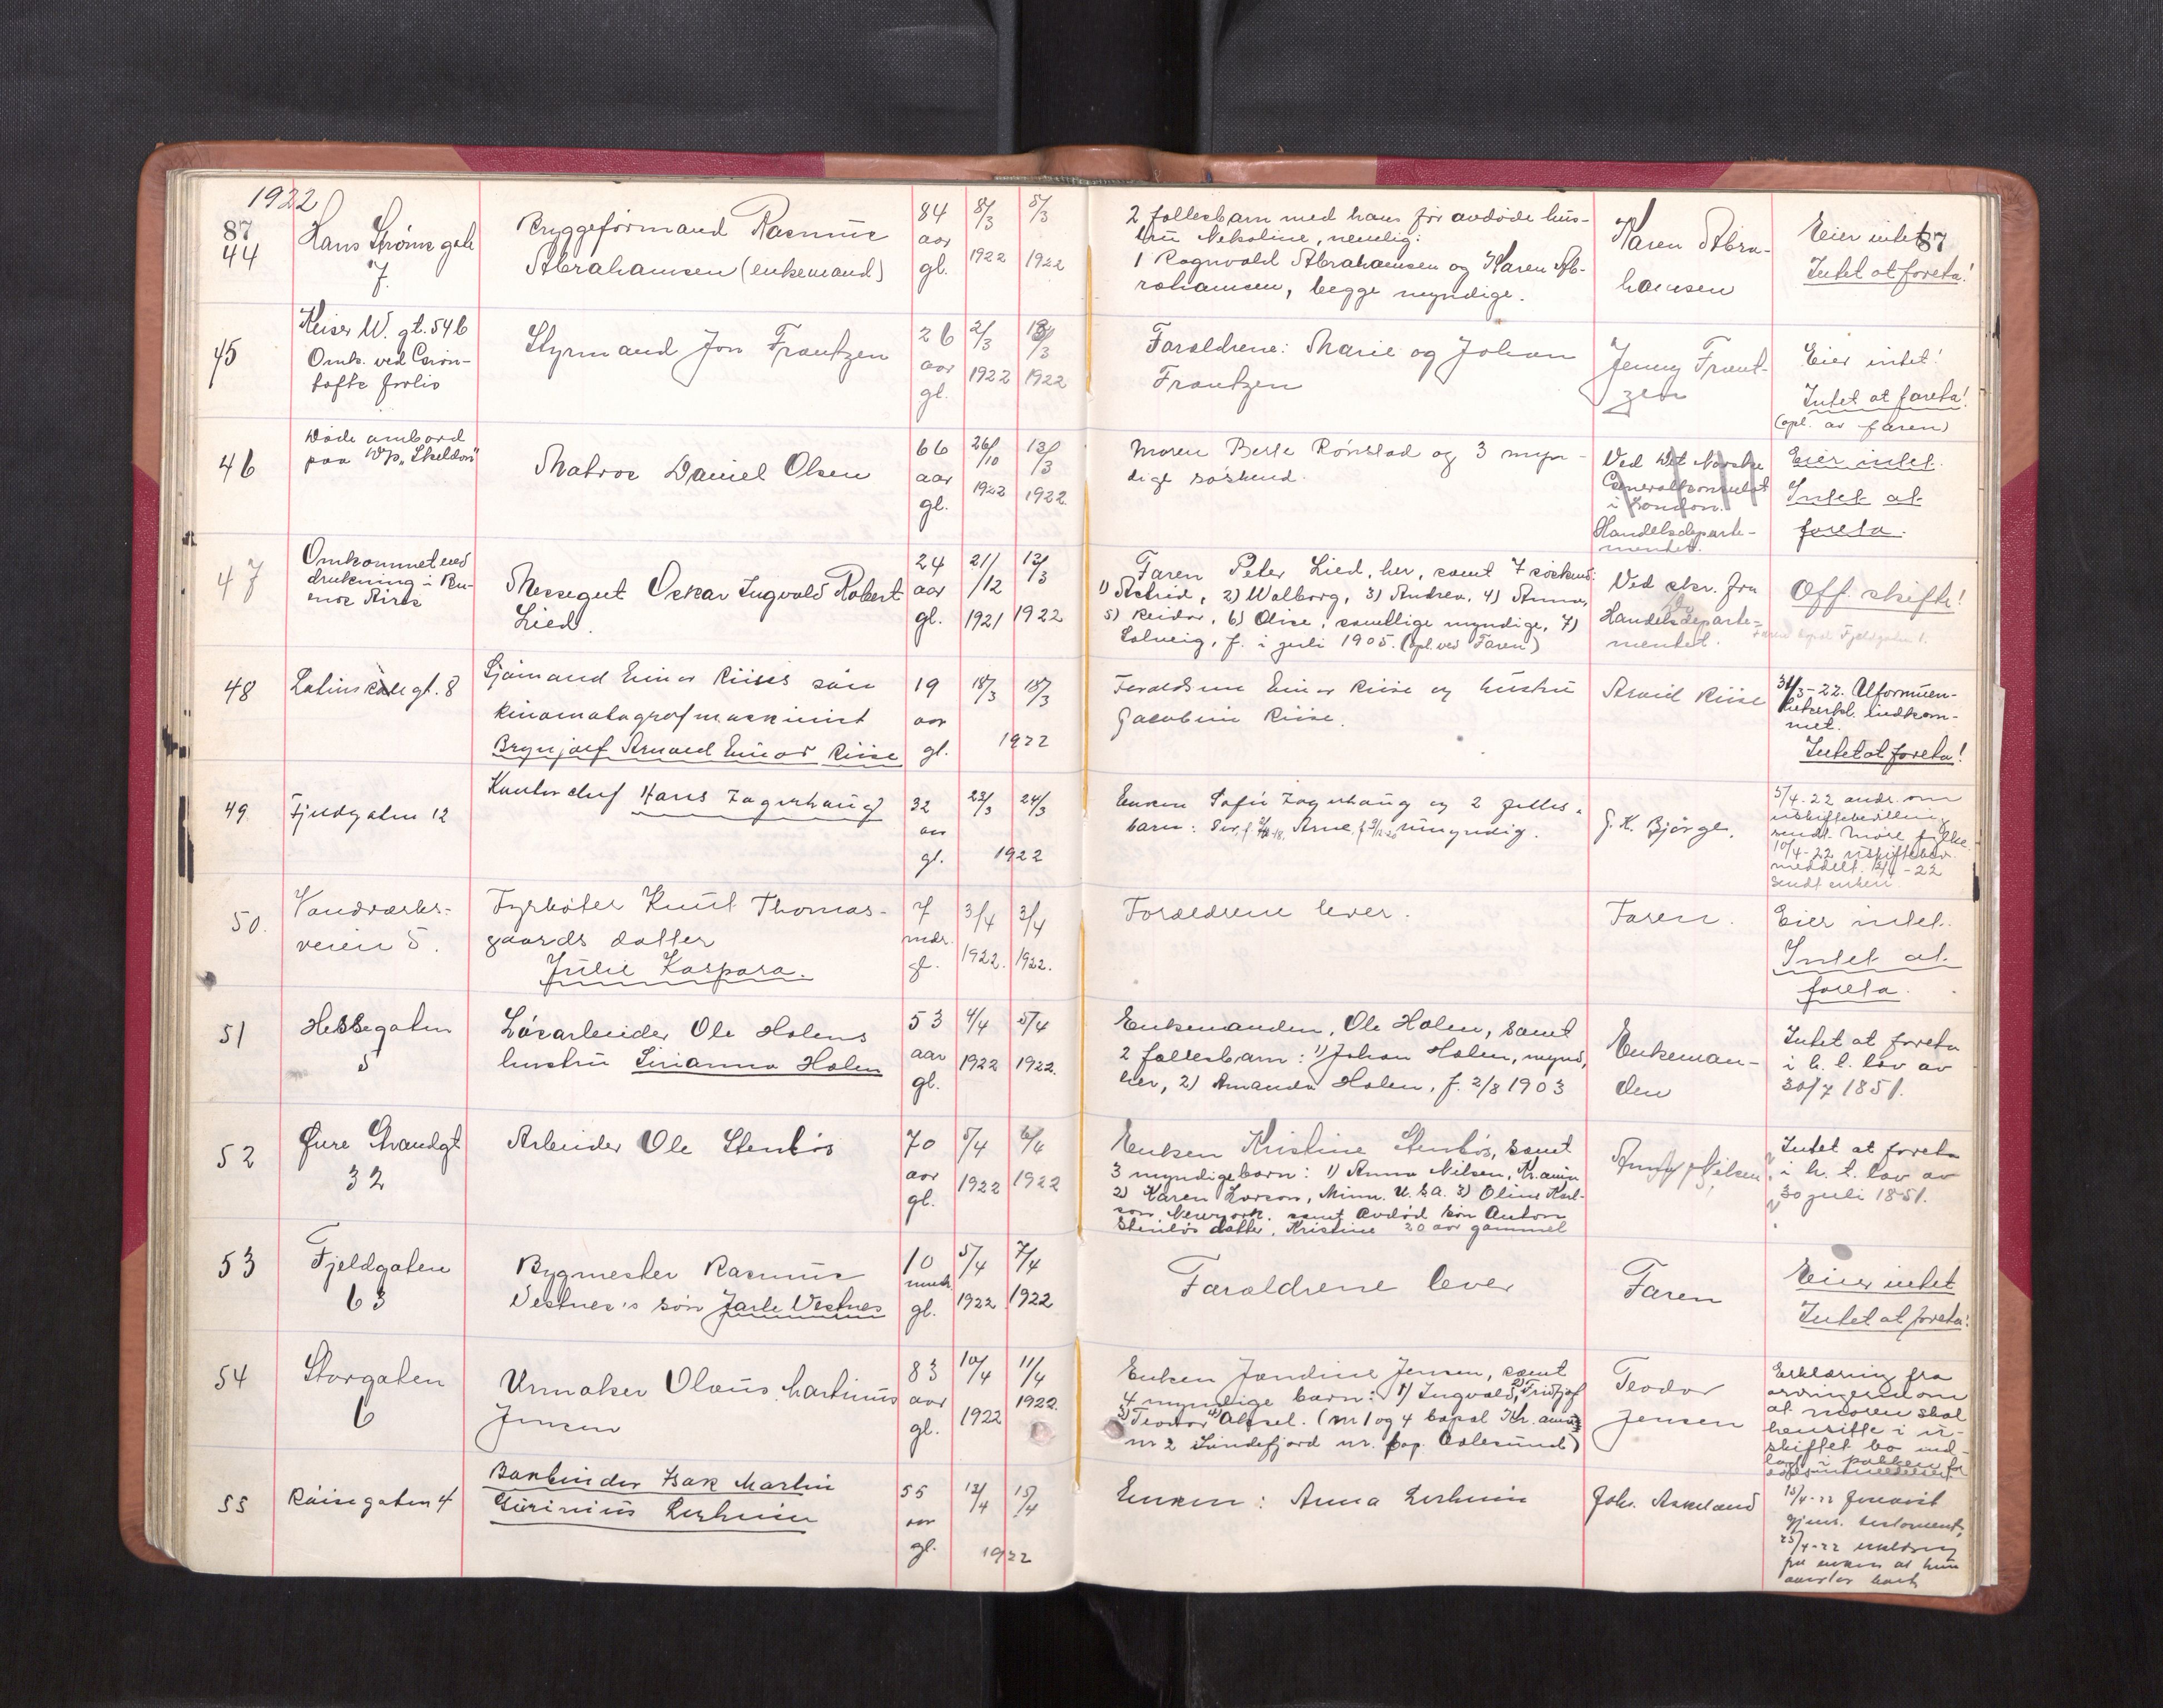 1922
87
44
Hans Strøms gate
7.
Bryggeformand Rasmus
Abrahamsen (enkemand)
84
aar
gl.
8/3
1922
8/3
1922
2 fællesbarn med hans før avdøde hus-
tru Nekoline, nemlig:
1 Ragnvald Abrahamsen og Karen Ab-
rahamsen, begge myndige.
Karen Abra-
hamsen
Eier intet
87
Intet at foreta!
45
Keiser W. gt. 54 b
Omk. ved
forlis
Styrmand Jon Frantzen
26
aar
gl.
2/3
1922
/3
1922
Forældrene: Marie og Johan
Frantzen
Jenny Frant-
zen
Eier intet!
Intet at foreta!
(opl. av faren)
46
Døde ombord
paa D/p. "Skeldon"
Matros Daniel Olsen
66
aar
gl.
26/10
1922
13/3
1922.
Moren Berte Rønstad og 3 myn-
dige søskend.
Ved Det Norske
Generalkonsulat
i London.
Handelsdeparte-
mentet.
Eier intet.
Intet at
foreta.
47
Omkommet ved
drukning i Bu-
enos Aires
Messegut Oskar Ingvald Robert
Lied.
24
aar
gl.
21/12
1921
13/3
1922
Faren Peter Lied, her, samt 7 søskend:
1) Astrid, 2) Walborg, 3) Andrea, 4) Anna,
5) Reidar, 6) Olise, samtlige myndige, 7)
Solveig, f. i juli 1905. (opl. ved Faren)
Ved skr. fra
Handelsdeparte-
mentet.
Off. skifte!
Faren bopæl Fjeldgaten 1.
48
Latinskole gt. 8
Sjømand Einar Riises søn
kinomatografmaskinist
Brynjolf Arnold Einar Riise
19
aar
gl.
18/3
18/3
1922
Forældrene Einar Riise og hustru
Jacobine Riise.
Arvid Riise
31/3-22. Uformuen-
hetserkl. indkom-
met.
Intet at foreta!
49
Fjeldgaten 12
Kontorchef Hans Zagerhaug
32
aar
gl.
23/3
24/3
1922
Enken Sofie Zagerhaug og 2 felles-
barn: Arne, umyndig.
G. K. Bjørge.
5/4-22 andr. om
uskiftebevilling
sendt Møre fylke.
10/4-22 uskiftebev.
meddelt. 12/4-22
sendt enken
50.
Vandværks-
veien 5.
Fyrbøter Knut Thomas-
gaards datter
Julie Kaspara.
7
mdr.
gl.
3/4
1922.
3/4
1922.
Forældrene lever.
Faren.
Eier intet.
Intet at
foreta.
51
Hessegaten
5
Løsarbeider Ole Holens
hustru Sirianna Holen
53
aar
gl.
4/4
1922
5/4
1922.
Enkemanden, Ole Holen, samt
2 fællesbarn: 1) Johan Holen, mynd,
her, 2) Amanda Holen, f. 2/8 1903
Enkeman-
den
Intet at foreta
i h. t. lov av
30/7 1851.
52
Øvre Strandgt
32
Arbeider Ole Stenløs
70
aar
gl.
5/4
1922
6/4
1922
Enken Kristine Stenløs, samt
3 myndige barn: 1) Anna Nilsen, Kr.sund
2) Karen Larson, Minn. U.S.A. 3) Oline Karl-
son, Newyork. samt avdød søn Anton
Stenløs datter, Kristine 20 aar gammel
Nilsen
Intet at foreta
i h. t. lov av
30 juli 1851.
53
Fjeldgaten
63
Bygmester Rasmus
Vestnes's søn Jarle Vestnes
10
mndr.
gl.
5/4
1922
7/4
1922
Forældrene lever
Faren
Eier intet
Intet at foreta!
54
Storgaten
6
Urmaker Olaus Martinus
Jensen
83
aar
gl.
10/4
1922
11/4
1922.
Enken Jondine Jensen, samt
4 myndige barn: 1) Ingvald, 2) Fridtjof
3) Teodor 4) Aksel. (nr 1 og 4 bopæl Kr.sund
nr 2 Sandefjord nr. bop. Aalesund)
Teodor
Jensen
Erklæring fra
arvingerne om
at moren skal
hensitte i u-
skiftet bo ind-
lagt i pakken for
55
Røisegaten 4
Bokbinder Isak Martin
Lerheim
55
aar
gl.
13/4
15/4
1922
Enken: Anna Lerheim
Joh. Askeland
15/4-22 forevist
gjens. testament,
25/4-22 erklæring
fra enken at hun
overtar boet